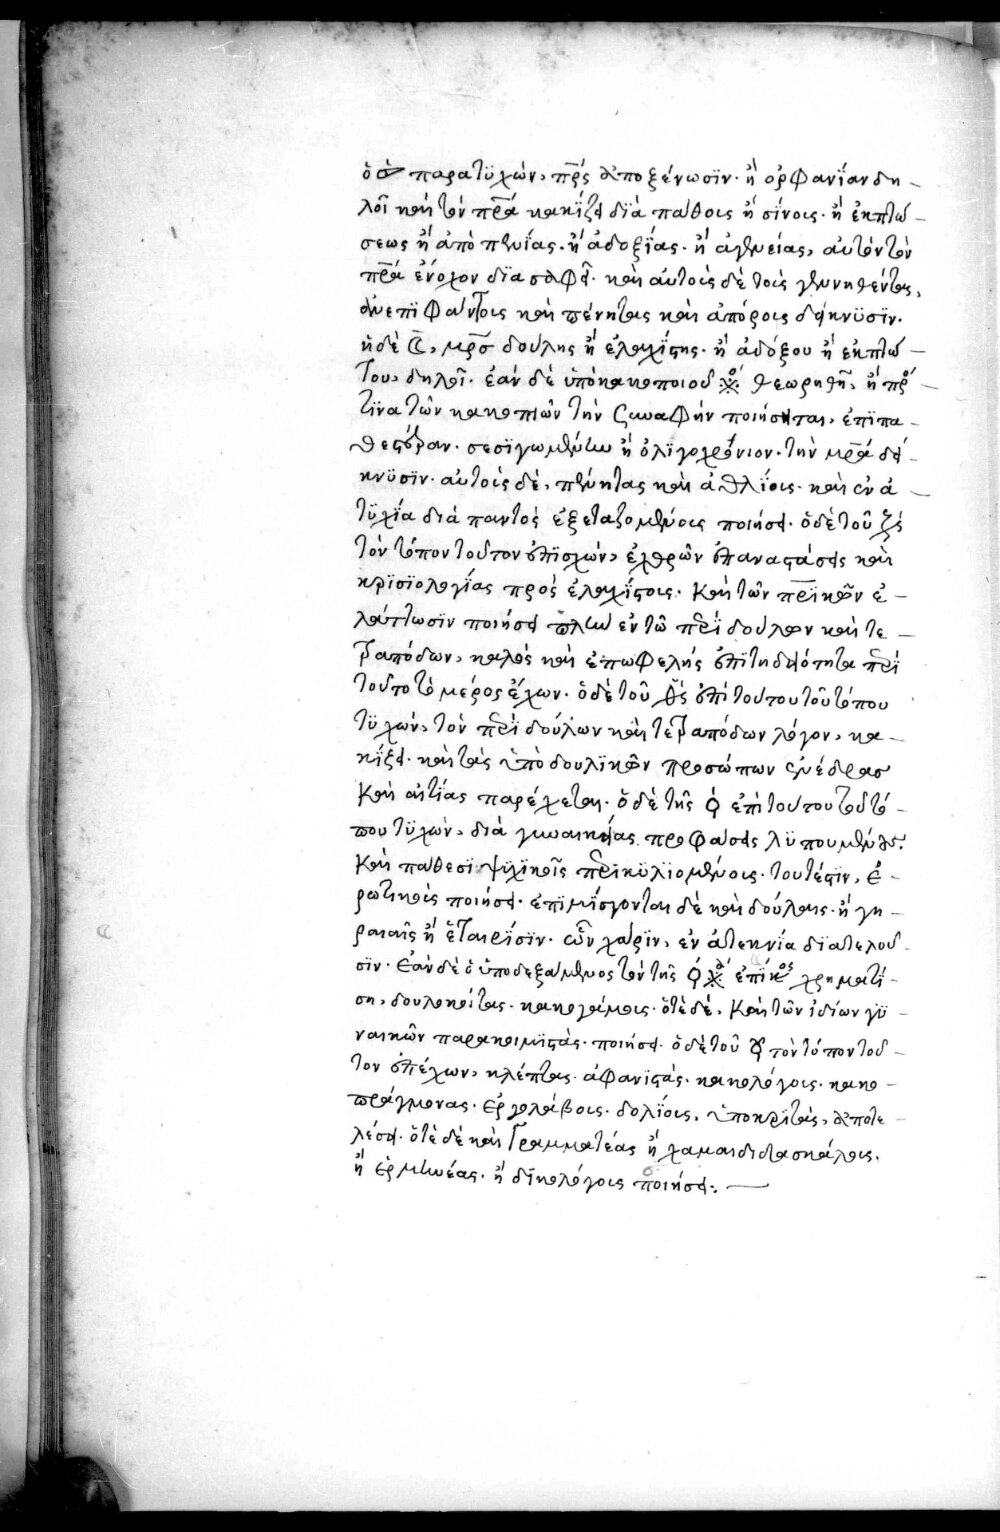 ὁ ☉ παρατϋχὼν, πρς ἀποξένωσϊν· ἢ ὀρφανΐαν δη-
λοῖ καὶ τὸν πρα κακΐζει δϊὰ πάθοις ἢ σίνοις· ἢ ἐκπτώ-
σεως ἢ ἀπὸ πενΐας· ἢ ἀδοξΐας· ἢ ἀγενείας, αὐτὸν τὸν
πρα ἔνοχον δϊασαφεῖ· καὶ αὐτοὶς δὲ τοὶς γεννηθέντας,
ἀνεπϊφάντοις καὶ πένητας καὶ ἀπόροις δείκνϋσϊν·
ἡ δὲ ☾, μρς δούλης ἢ ἐλαχΐστης· ἢ ἀδόξου ἢ ἐκπτώ-
του, δηλοῖ· ἐὰν δὲ ὑπὸ κακοποιοῦ θεωρηθῆ, ἢ πρός
τϊνα τῶν κακοποιῶν τὴν συναφὴν ποιήσηται, ἐπϊπα-
θεστέραν· σεσϊγωμένην ἢ ὀλϊγοχρόνιον· τὴν μρα δεί-
κνϋσϊν· αὐτοὶς δὲ, πένητας καὶ ἀθλΐοις· καὶ ἐν ἀ-
τϋχΐα διὰ παντὸς ἐξεταζομένοις ποιήσει· ὁ δὲ τοῦ ♃ς
τὸν τόπον τοῦτον ἐπϊσχὼν, ἐχθρῶν ἐπαναστάσεις καὶ
κρϊσϊολογΐας πρὸς ἐλαχΐστοις· Καὶ τῶν πρϊκῶν ἐ-
λάττωσϊν ποιήσει πλὴν ἐν τῶ περὶ δούλων καὶ τε-
τραπόδων, καλὸς καὶ ἐπωφελὴς ἐπϊτηδειότητα περὶ
τοῦτο τὸ μέρος ἔχων· ὁ δὲ τοῦ ♂ς ἐπὶ τούτου τοῦ τόπου
τϋχὼν, τὸν περὶ δούλων καὶ τετραπόδων λόγον, κα-
κΐξει· καὶ τὰς ὑπὸ δουλϊκῶν προσώπων ἐνέδρας
Καὶ αἰτΐας παρέχεται· ὁ δὲ τῆς ♀ ἐπὶ τούτου τοῦ τό-
που τϋχὼν, διὰ γυναικείας προφάσεις λϋπουμένους·
Καὶ πάθεσϊ ψϋχϊκοῖς περικϋλϊομένοις· τουτέστϊν, ἐ-
ρωτικοὶς ποιήσει· ἐπϊμΐσγονται δὲ καὶ δούλαις· ἢ γη-
ραιαῖς ἢ ἑταιρΐσϊν· ὧν χάρϊν, ἐν ἀτεκνΐα δϊατελοῦ-
σϊν· Ἐὰν δὲ ὁ ὑποδεξάμενος τὸν τῆς ♀ ἐπΐκος χρηματΐ-
ση, δουλοκοίτας· κακογάμοις· ὁτὲ δὲ, Καὶ τῶν ἰδίων γϋ-
ναικῶν παρακοιμϊστὰς· ποιήσει· ὁ δὲ τοῦ ☿ τὸν τόπον τοῦ-
τον ἐπέχων, κλέπτας· ἀφανϊστὰς· κακολόγοις· κακο-
πράγμονας· ἐργολάβοις· δολΐοις, ὑποκρϊτὰς, ἀποτε-
λέσει· ὁτὲ δὲ καὶ Γραμματέας ἢ χαμαιδιδασκάλοις·
ἢ ἑρμηνέας· ἢ δϊκολόγοις ποιήσει:· —